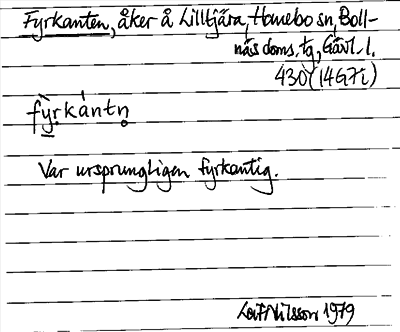 Fyrkanten, åker å Lilltjära, Hanebo sn, Boll-
näs doms. tg, Gävl. l.
430 (14G7i)
fỳrkántn̥
Var ursprungligen fyrkantig.
Leif Nilsson 1979